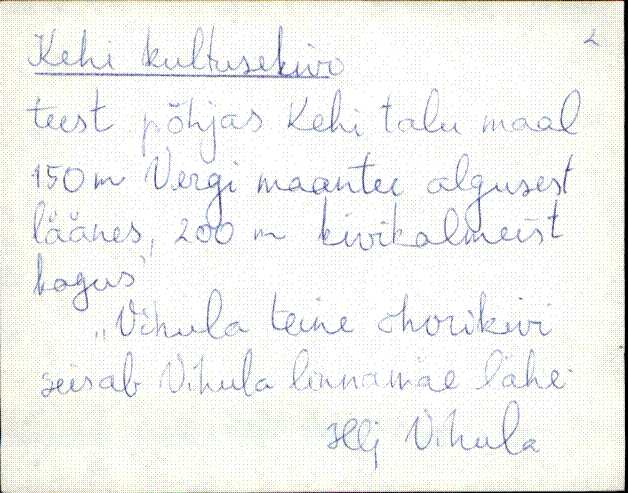 2
Kehi kultusekivi
teest põhjas Kehi talu maal
150 m Vergi maantee algusest
läänes, 200 m kivikalmeist
kagus
„Vihula teine ohvrikivi
seisab Vihula linnamäe lähe-
Vihula